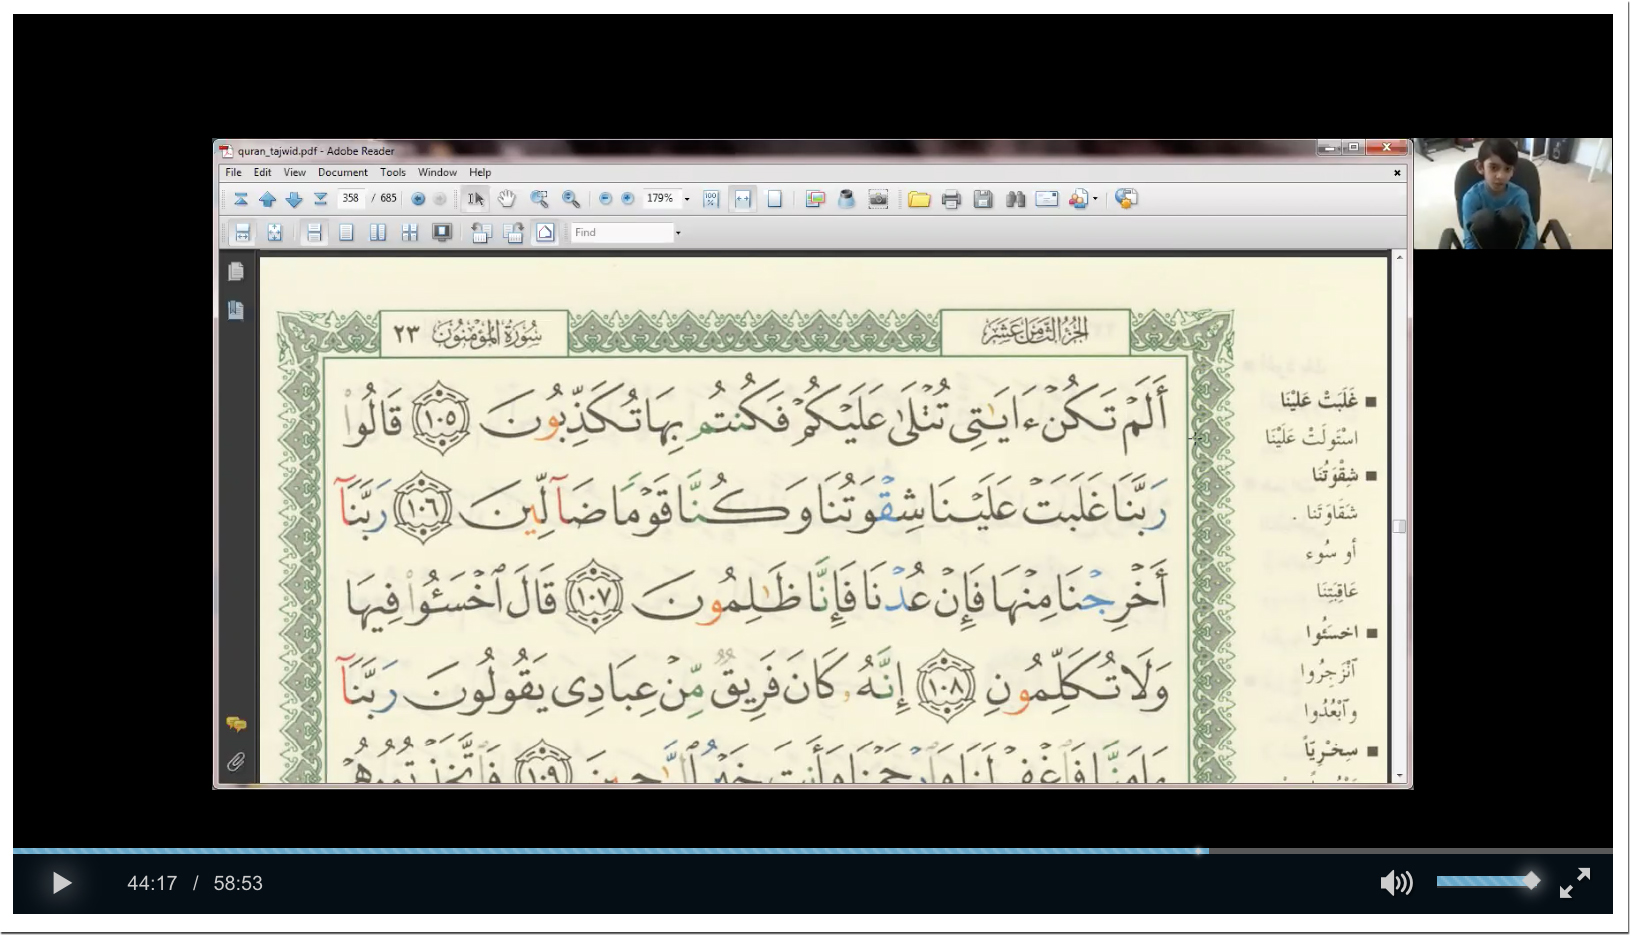 quran_tajwid.pdf - Adobe Reader
File Edit View Document Tools Window Help
358 / 685 179%
Find
سُورَةُ المُؤْمِنُونَ ٢٣
الجُزءُ الثَّامِنُ عَشَرَ
أَلَمْ تَكُنْ ءَايَٰتِى تُتْلَىٰ عَلَيْكُمْ فَكُنتُم بِهَا تُكَذِّبُونَ ١٠٥ قَالُوا۟
رَبَّنَا غَلَبَتْ عَلَيْنَا شِقْوَتُنَا وَكُنَّا قَوْمًا ضَآلِّينَ ١٠٦ رَبَّنَآ
أَخْرِجْنَا مِنْهَا فَإِنْ عُدْنَا فَإِنَّا ظَٰلِمُونَ ١٠٧ قَالَ ٱخْسَـُٔوا۟ فِيهَا
وَلَا تُكَلِّمُونِ ١٠٨ إِنَّهُۥ كَانَ فَرِيقٌ مِّنْ عِبَادِى يَقُولُونَ رَبَّنَآ
ءَامَنَّا فَٱغْفِرْ لَنَا وَٱرْحَمْنَا وَأَنتَ خَيْرُ ٱلرَّٰحِمِينَ ١٠٩ فَٱتَّخَذْتُمُوهُمْ
■ غَلَبَتْ عَلَيْنَا
استَولَتْ عَلَيْنَا
■ شِقْوَتُنَا
شَقَاوَتَنا .
أو سُوء
عَاقِبَتِنَا
■ اخسَئُوا
ٱنْزَجِرُوا
وٱبْعُدُوا
■ سِخْرِيّاً
44:17 / 58:53